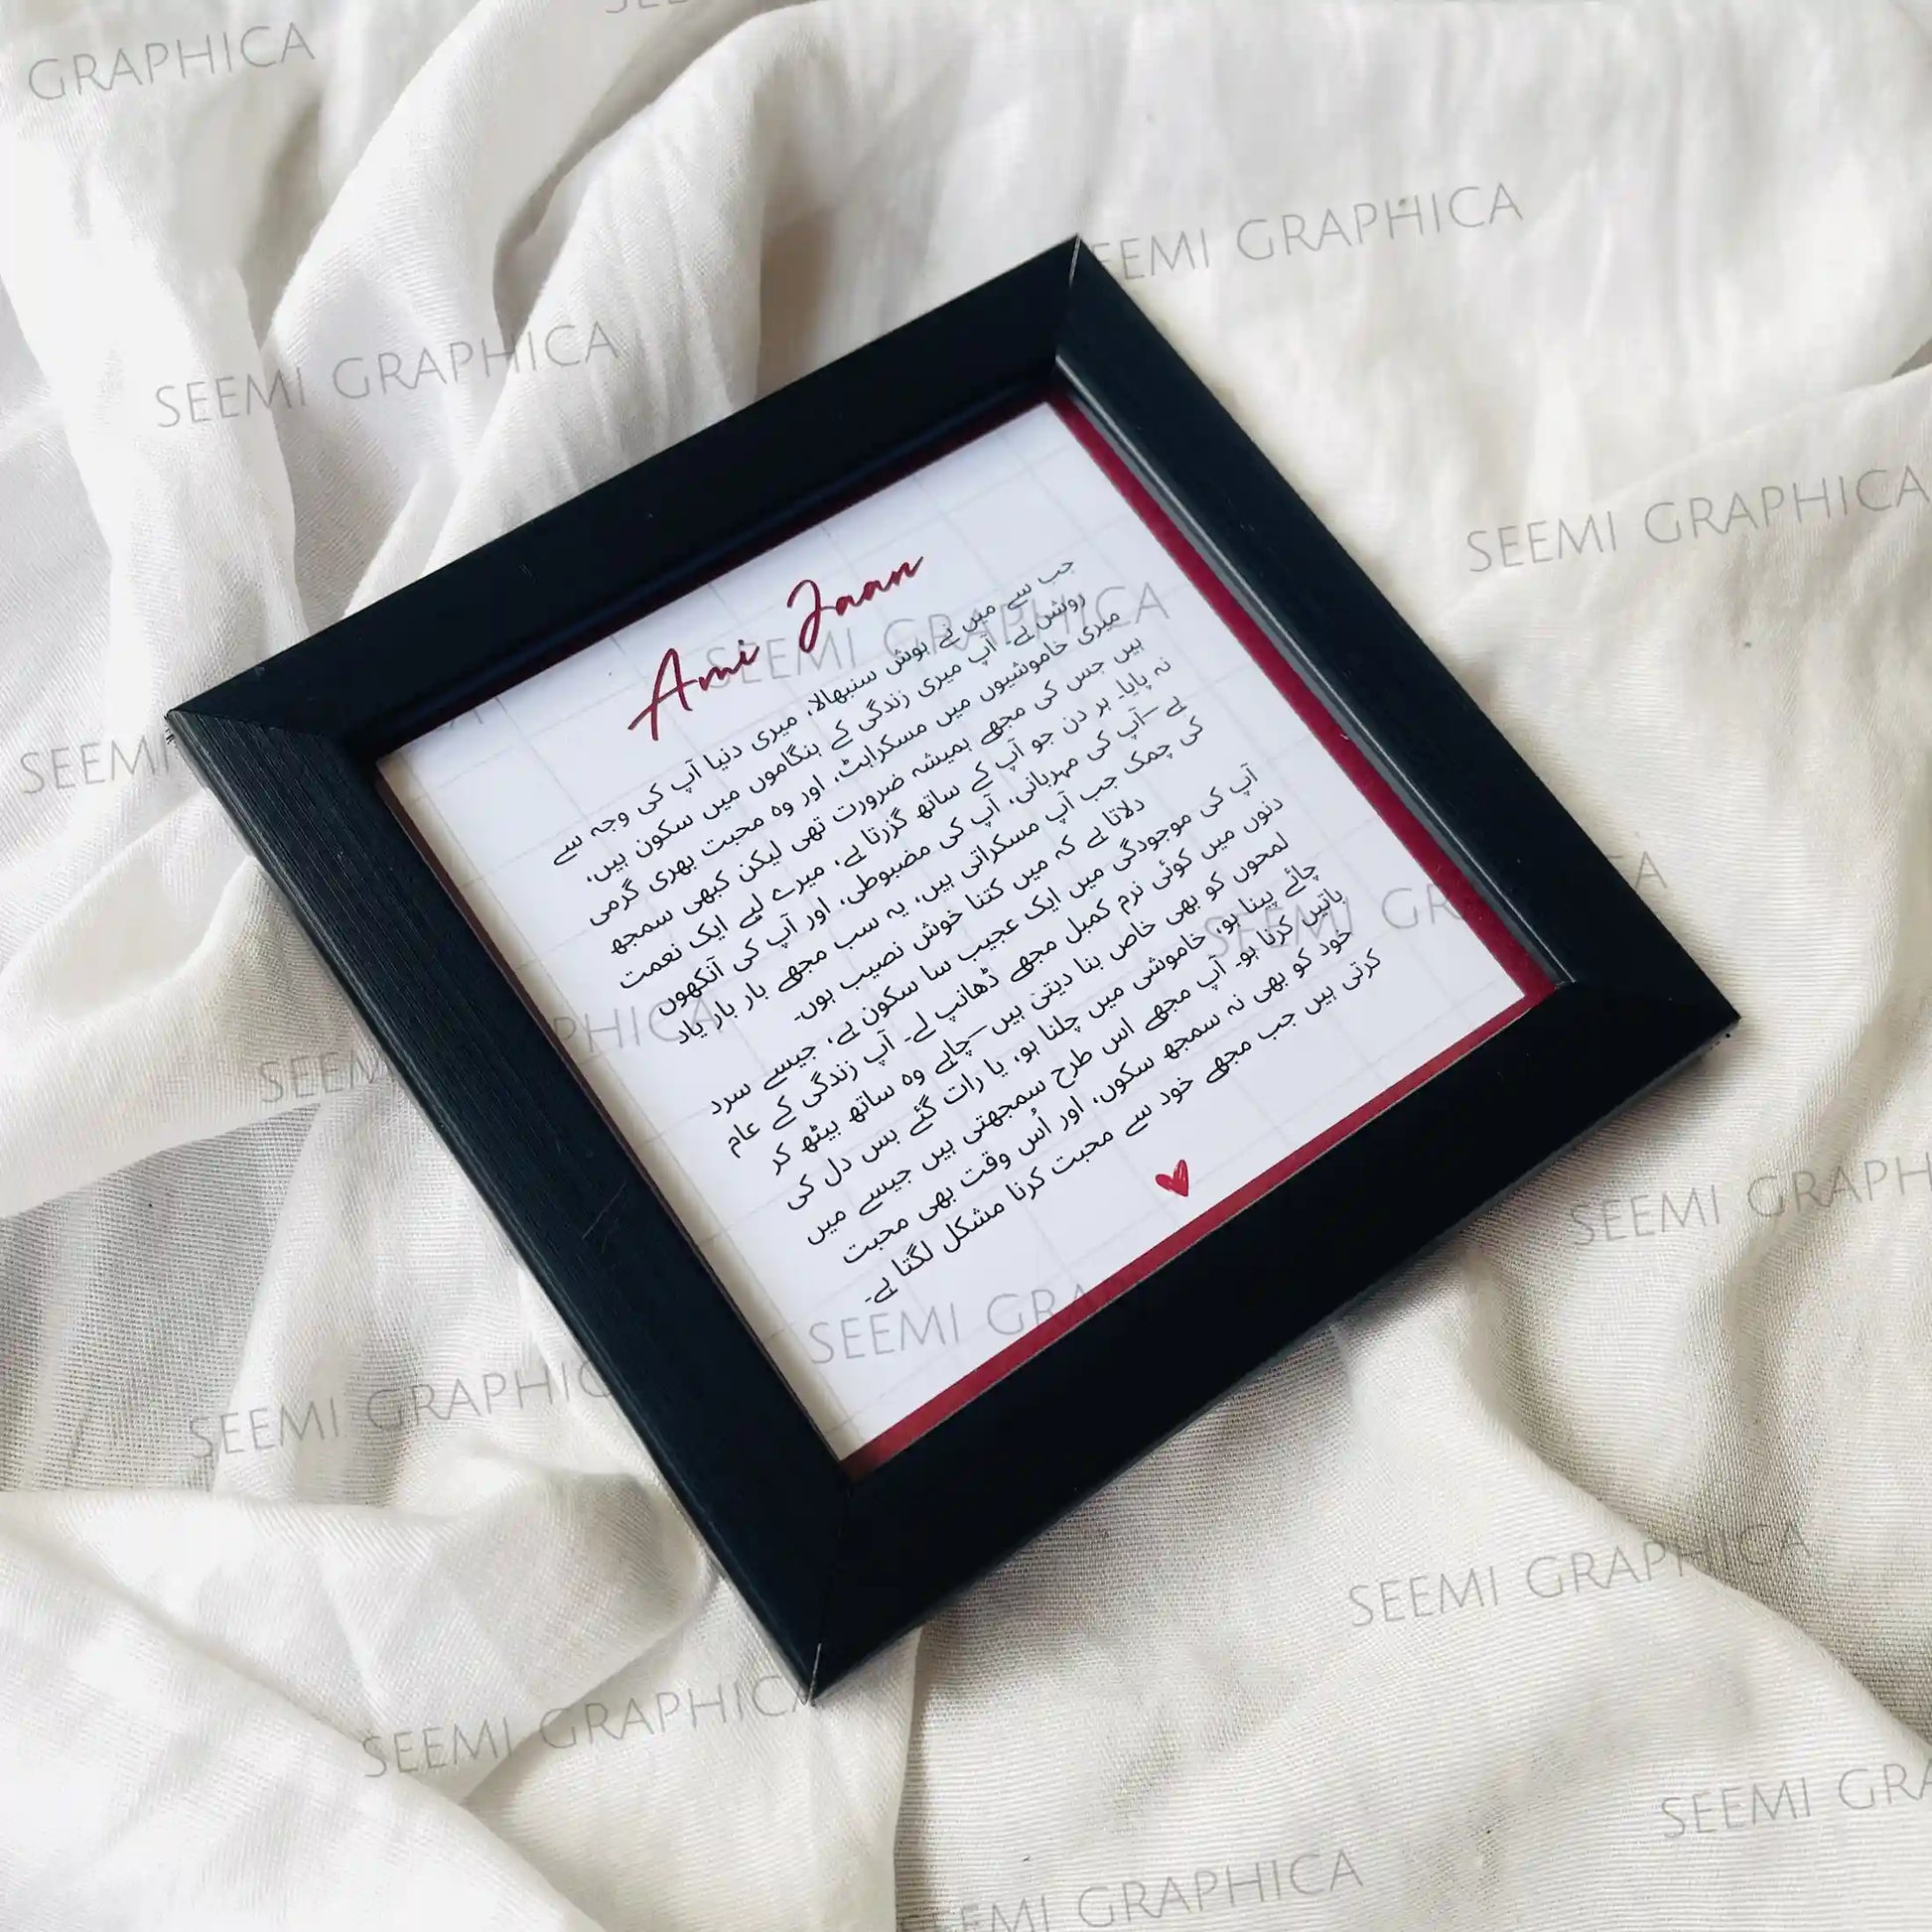 Ami Jaan
جب سے میں نے ہوش سنبھالا، میری دنیا آپ کی وجہ سے
روشن ہے۔ آپ میری زندگی کے ہنگاموں میں سکون ہیں،
میری خاموشیوں میں مسکراہٹ، اور وہ محبت بھری گرمی
ہیں جس کی مجھے ہمیشہ ضرورت تھی لیکن کبھی سمجھ
نہ پایا۔ ہر دن جو آپ کے ساتھ گزرتا ہے، میرے لیے ایک نعمت
ہے —آپ کی مہربانی، آپ کی مضبوطی، اور آپ کی آنکھوں
کی چمک جب آپ مسکراتی ہیں، یہ سب مجھے بار بار یاد
دلاتا ہے کہ میں کتنا خوش نصیب ہوں۔
آپ کی موجودگی میں ایک عجیب سا سکون ہے، جیسے سرد
دنوں میں کوئی نرم کمبل مجھے ڈھانپ لے۔ آپ زندگی کے عام
لمحوں کو بھی خاص بنا دیتی ہیں—چاہے وہ ساتھ بیٹھ کر
چائے پینا ہو، خاموشی میں چلنا ہو، یا رات گئے بس دل کی
باتیں کرنا ہو۔ آپ مجھے اس طرح سمجھتی ہیں جیسے میں
خود کو بھی نہ سمجھ سکوں، اور اُس وقت بھی محبت
کرتی ہیں جب مجھے خود سے محبت کرنا مشکل لگتا ہے۔
GRAPHICA
SEEMI GRAPHICA
SEEMI GRAPHICA
SEEMI GRAPHICA
SEEMI GRAPHICA
SEEMI GRAPHICA
SEEMI GRAPHICA
SEEMI GRAPHICA
SEEMI GRAPHICA
SEEMI GRAPHICA